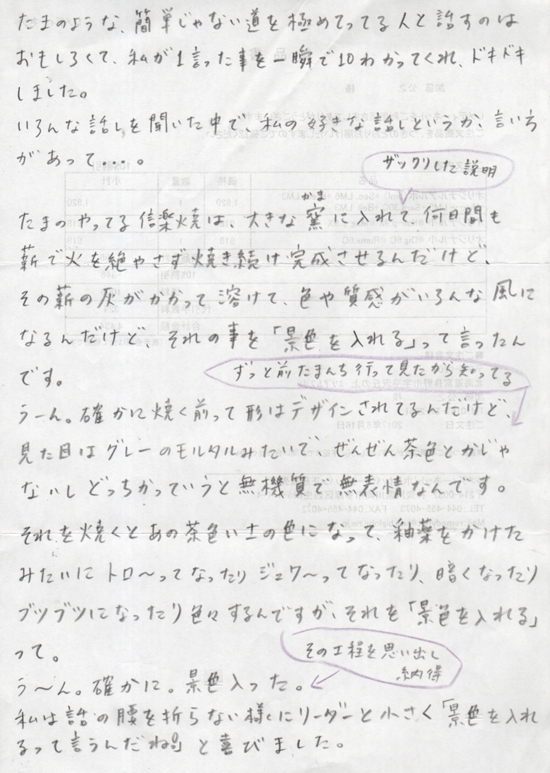 たまのような、簡単じゃない道を極めてってる人と話すのは
おもしろくて、私が1言った事を一瞬で10わかってくれ、ドキドキ
しました。
いろんな話しを聞いた中で私の好きな話しというか、言い方
があって...。
ザックリした説明
たまのやってる信楽焼は、大きな窯に入れて、何日間も
かま
薪で火を絶やさず焼き続け完成させるんだけど、
その薪の灰がかかって溶けて、色や質感がいろんな風に
なるんだけど、それの事を「景色を入れる」って言ったん
です。
ずっと前たまんち行って見たから知ってる
うーん。確かに焼く前って形はデザインされてるんだけど、
見た目はグレーのモルタルみたいで、ぜんぜん茶色とかじゃ
ないしどっちかっていうと無機質で無表情なんです。
それを焼くとあの茶色い土の色になって、釉薬をかけた
みたいにトロ〜ってなったりジュワ〜ってなったり、暗くなったり
ブツブツになったり色々するんですが、それを「景色を入れる」
って。
その工程を思い出し
納得
う〜ん。確かに。景色入った。
私は話の腰を折らない様にリーダーと小さく「景色を入れ
るって言うんだね」と喜びました。